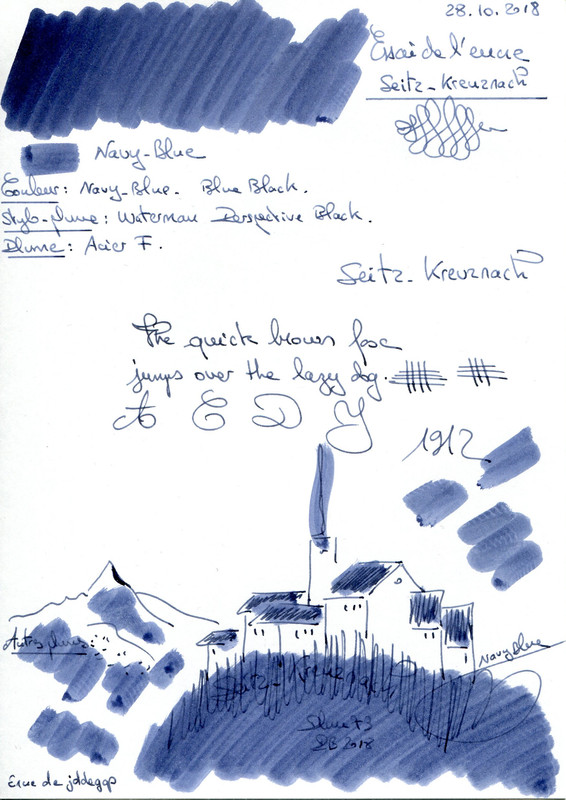 28.10.2018
Essai de l'encre
Seitz-Kreuznach
Navy-Blue
Couleur: Navy-Blue. Blue Black.
Stylo-plume: Waterman Perspective Black.
Plume: Acier F.
Seitz-Kreuznach
The quick brown fox
jumps over the lazy dog.
A E D Y
1912
Autres plumes:
Navy Blue
Seitz-Kreuznach
2018